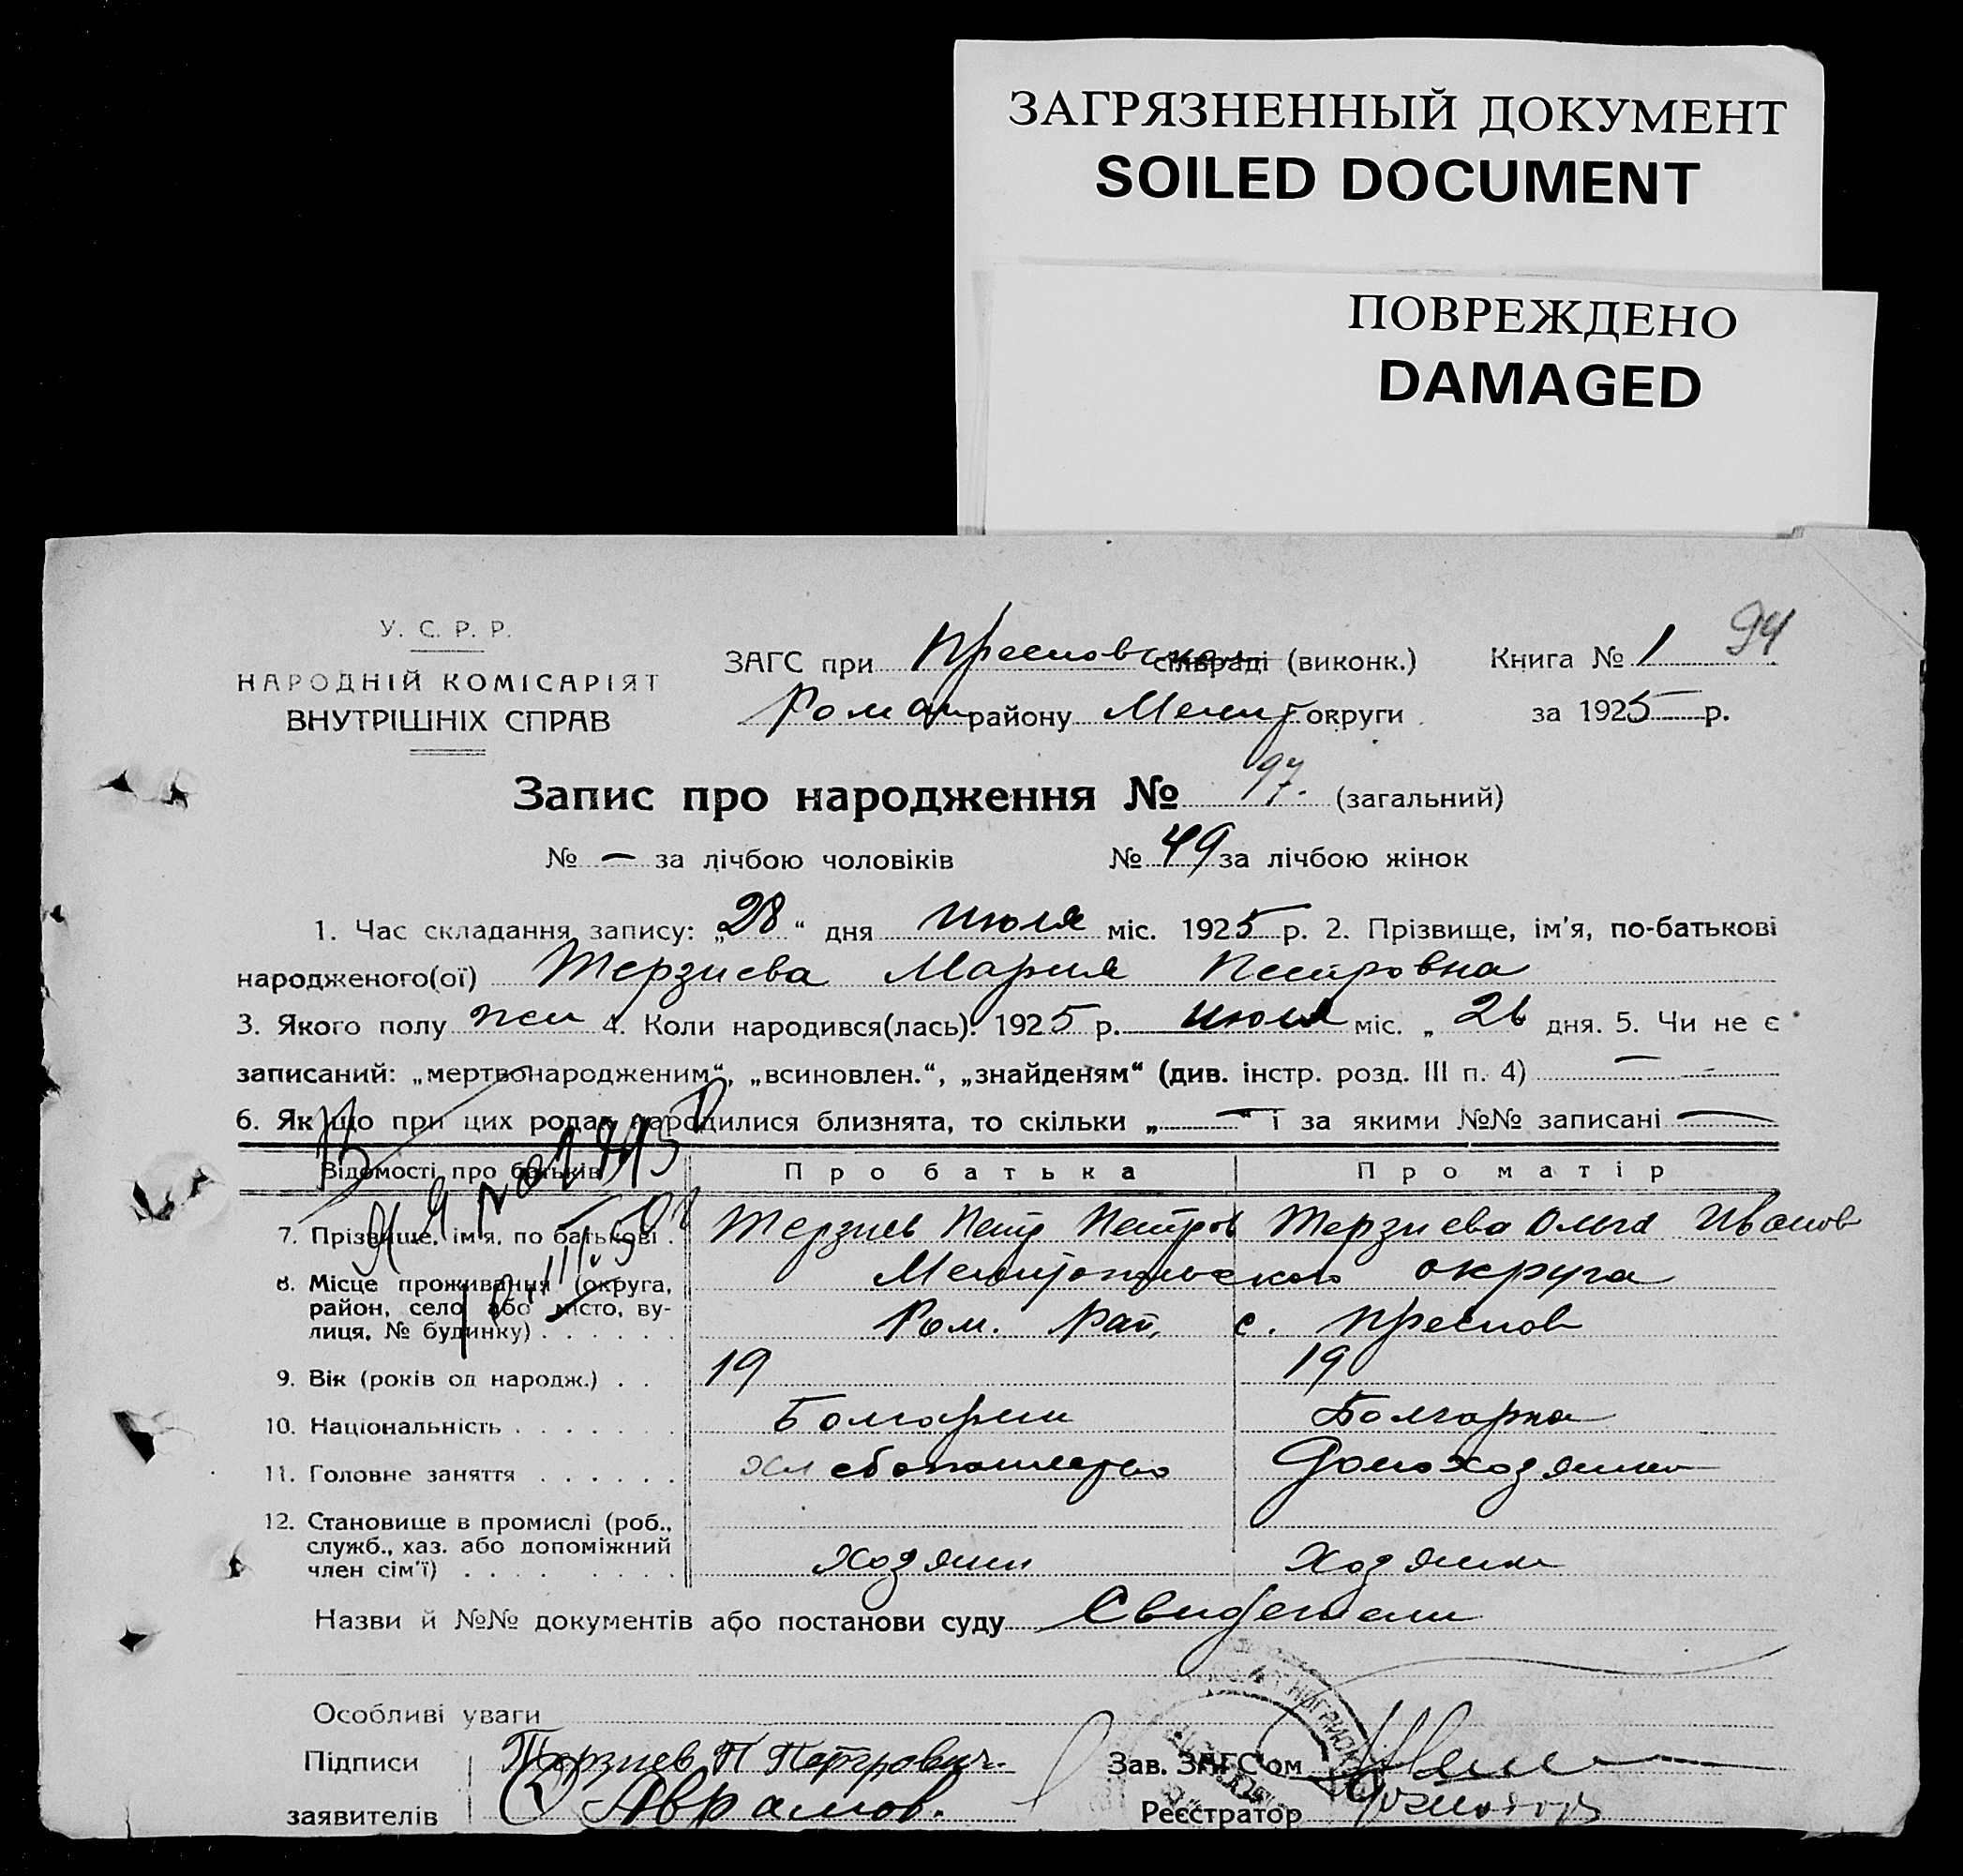 ЗАГРЯЗНЕННЫЙ ДОКУМЕНТ
SOILED DOCUMENT
ПОВРЕЖДЕНО
DAMAGED
94
У. С. Р. Р.
НАРОДНІЙ КОМІСАРІЯТ
ВНУТРІШНІХ СПРАВ
ЗАГС при Преславском сільраді (виконк.) Книга № 1
Роман району Мелит округи за 1925 р.
Запис про народження № 97. (загальний)
№ — за лічбою чоловіків № 49 за лічбою жінок
1. Час складання запису: „28“ дня июля міс. 1925 р. 2. Прізвище, ім'я, по-батькові
народженого(ої) Терзиева Мария Петровна
3. Якого полу жен 4. Коли народився(лась): 1925 р. июля міс. „26 дня. 5. Чи не є
записаний: „мертвонародженим“, „всиновлен.“, „знайденям“ (див. інстр. розд. III п. 4) —
6. Якщо при цих родах народилися близнята, то скільки „—“ і за якими №№ записані —
Відомості про батьків Про батька Про матір
7. Прізвище, ім'я, по батькові . Терзиев Петр Петров Терзиева Ольга Иванов
8. Місце проживання (округа, Мелитопольского округа
район, село або місто, ву-
лиця, № будинку) . . . . . . Ром. рай, с. Преслав
9. Вік (років од народж.) . . 19 19
10. Національність . . . . . . . Болгарин Болгарка
11. Головне заняття . . . . . . Хлебопашество Домохозяйка
12. Становище в промислі (роб.,
служб., хаз. або допоміжний
член сім'ї) . . . . . . . . . хозяин хозяйка
Назви й №№ документів або постанови суду Свидетели
Особливі уваги
Підписи Терзиев П Петрович. Зав. ЗАГС'ом
заявителів Аврамов. Реєстратор